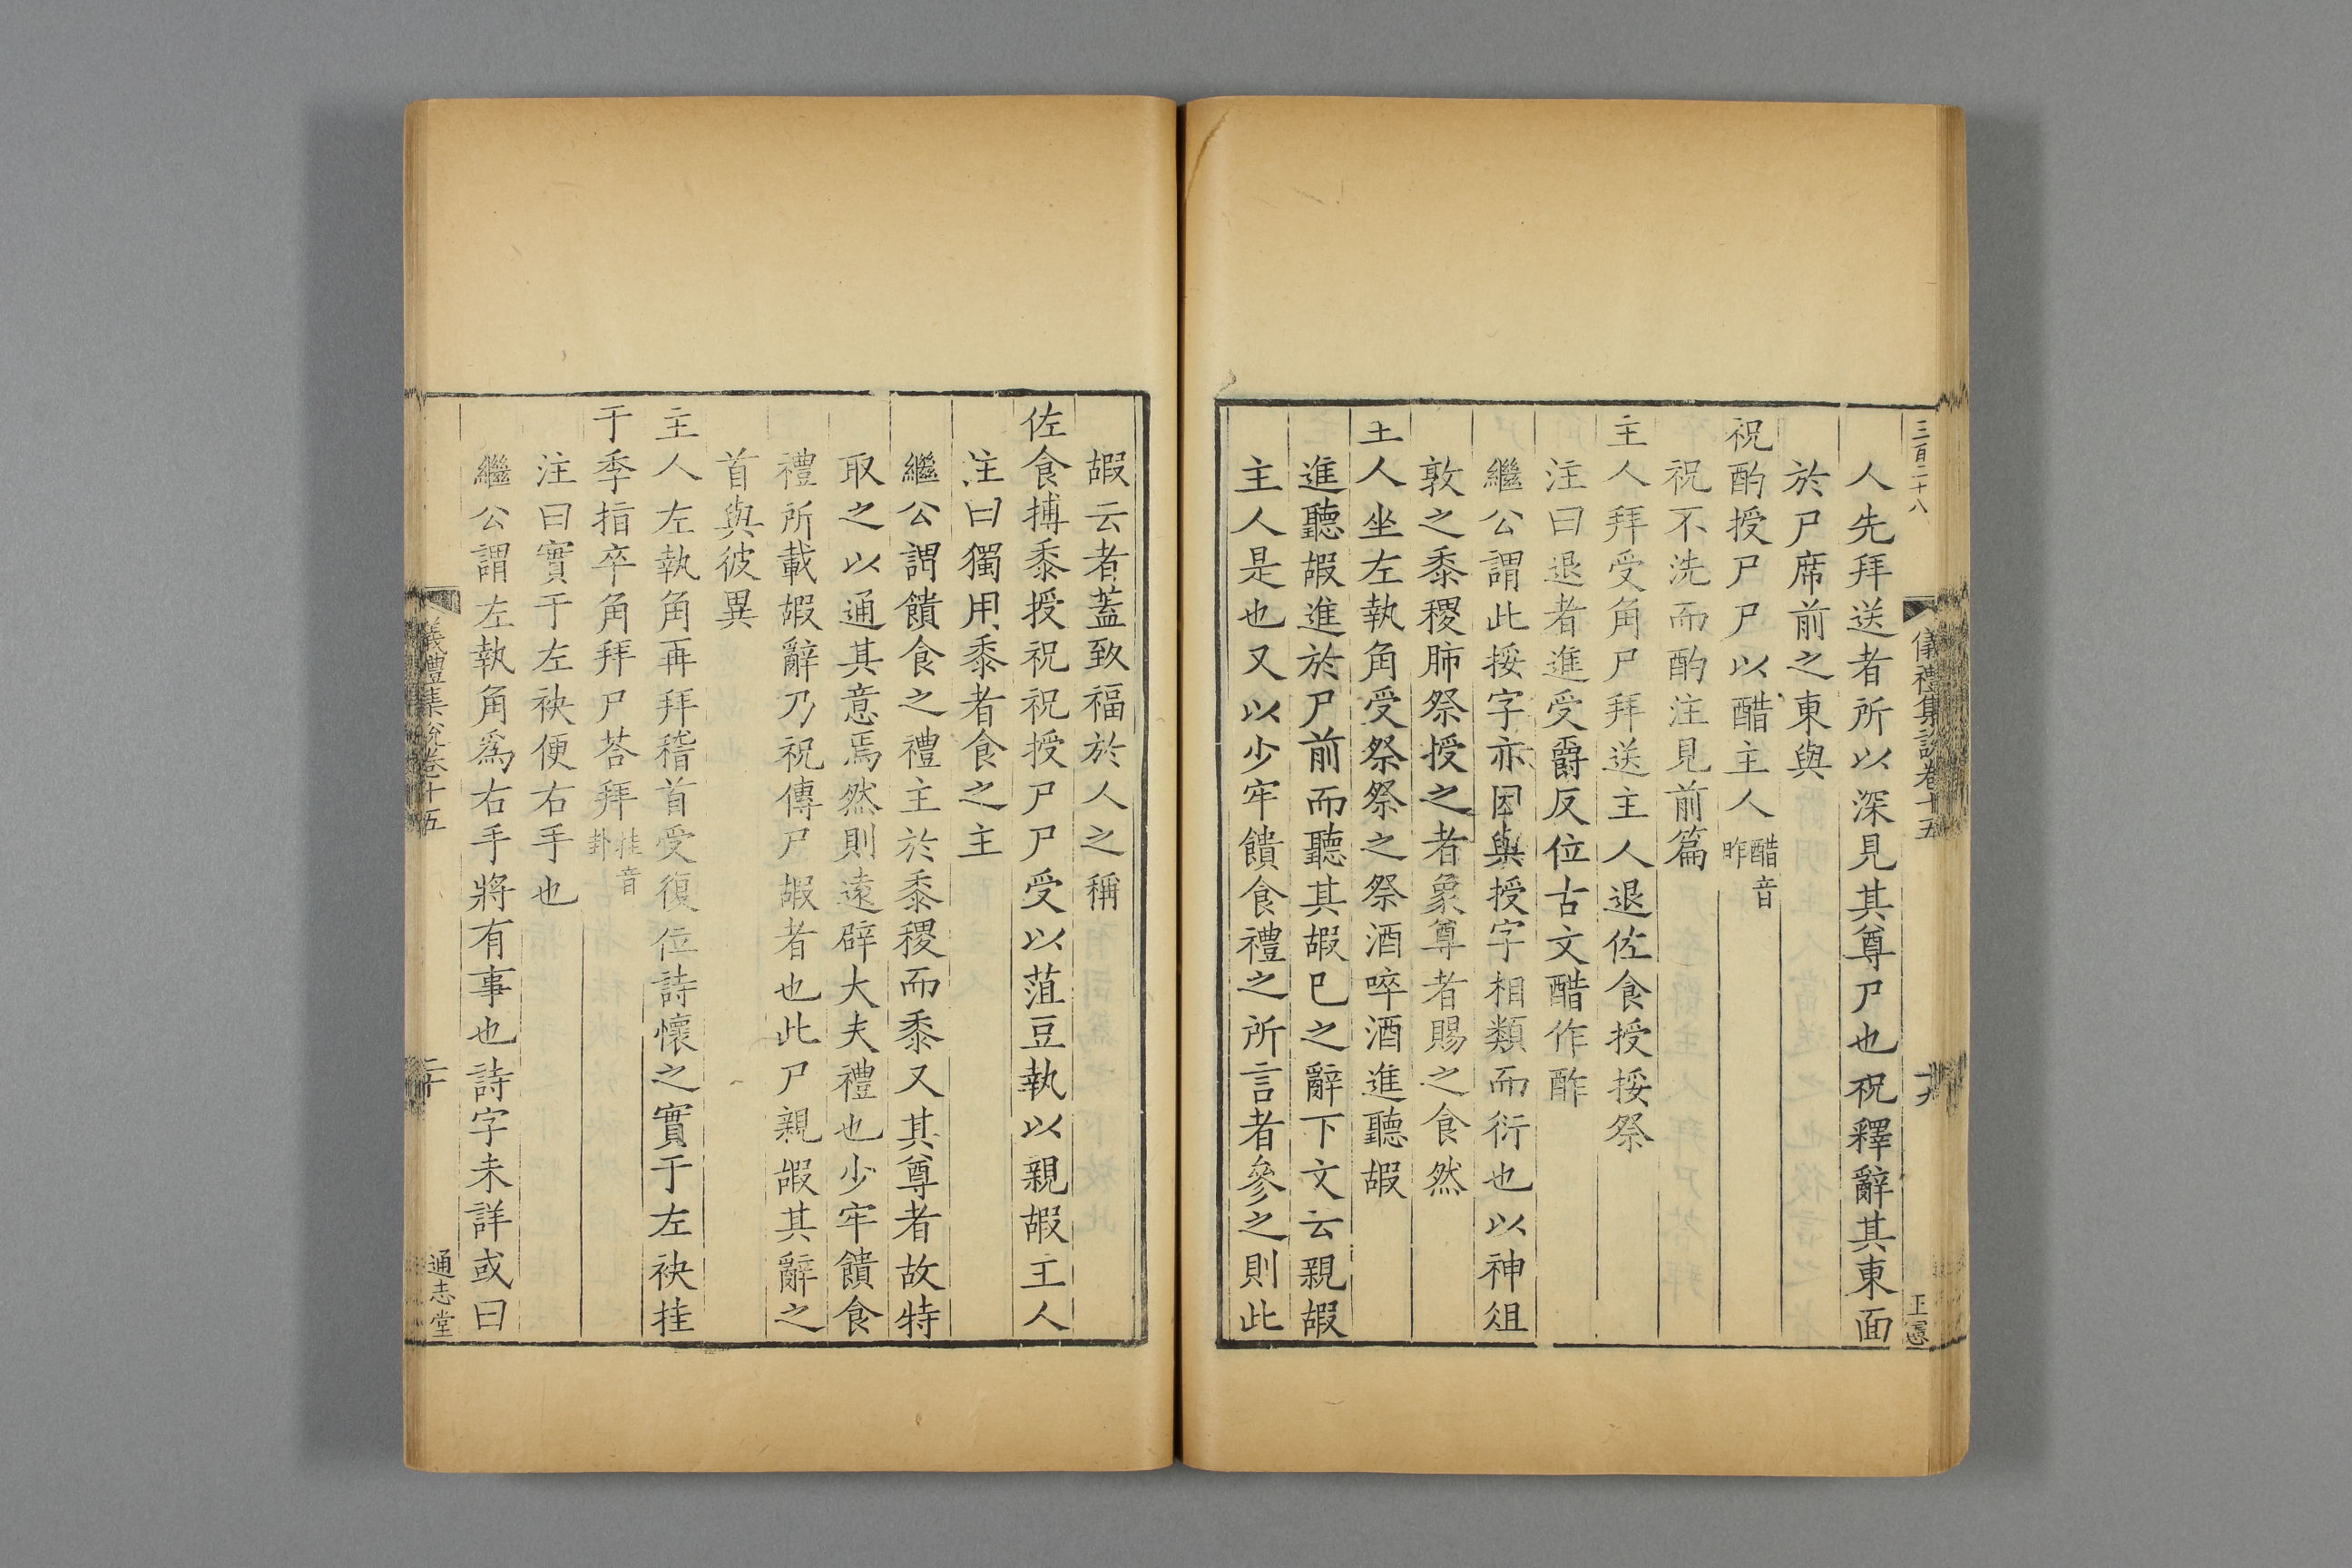 三百二十八
儀禮集說卷十五
十九
正憲
人先拜送者所以深見其尊尸也祝釋辭其東面
於尸席前之東與
祝酌授尸尸以醋主人醋音昨
祝不洗而酌注見前篇
主人拜受角尸拜送主人退佐食授挼祭
注曰退者進受爵反位古文醋作酢
繼公謂此挼字亦因與授字相類而衍也以神俎
敦之黍稷肺祭授之者象尊者賜之食然
主人坐左執角受祭祭之祭酒啐酒進聽嘏
進聽嘏進於尸前而聽其嘏巳之辭下文云親嘏
主人是也又以少牢饋食禮之所言者參之則此
嘏云者蓋致福於人之稱
佐食摶黍授祝祝授尸尸受以菹豆執以親嘏主人
注曰獨用黍者食之主
繼公謂饋食之禮主於黍稷而黍又其尊者故特
取之以通其意焉然則遠辟大夫禮也少牢饋食
禮所載嘏辭乃祝傳尸嘏者也此尸親嘏其辭之
首與彼異
主人左執角再拜稽首受復位詩懷之實于左袂挂
于季指卒角拜尸荅拜挂音卦
注曰實于左袂便右手也
繼公謂左執角爲右手將有事也詩字未詳或曰
儀禮集說卷十五
二十
通志堂